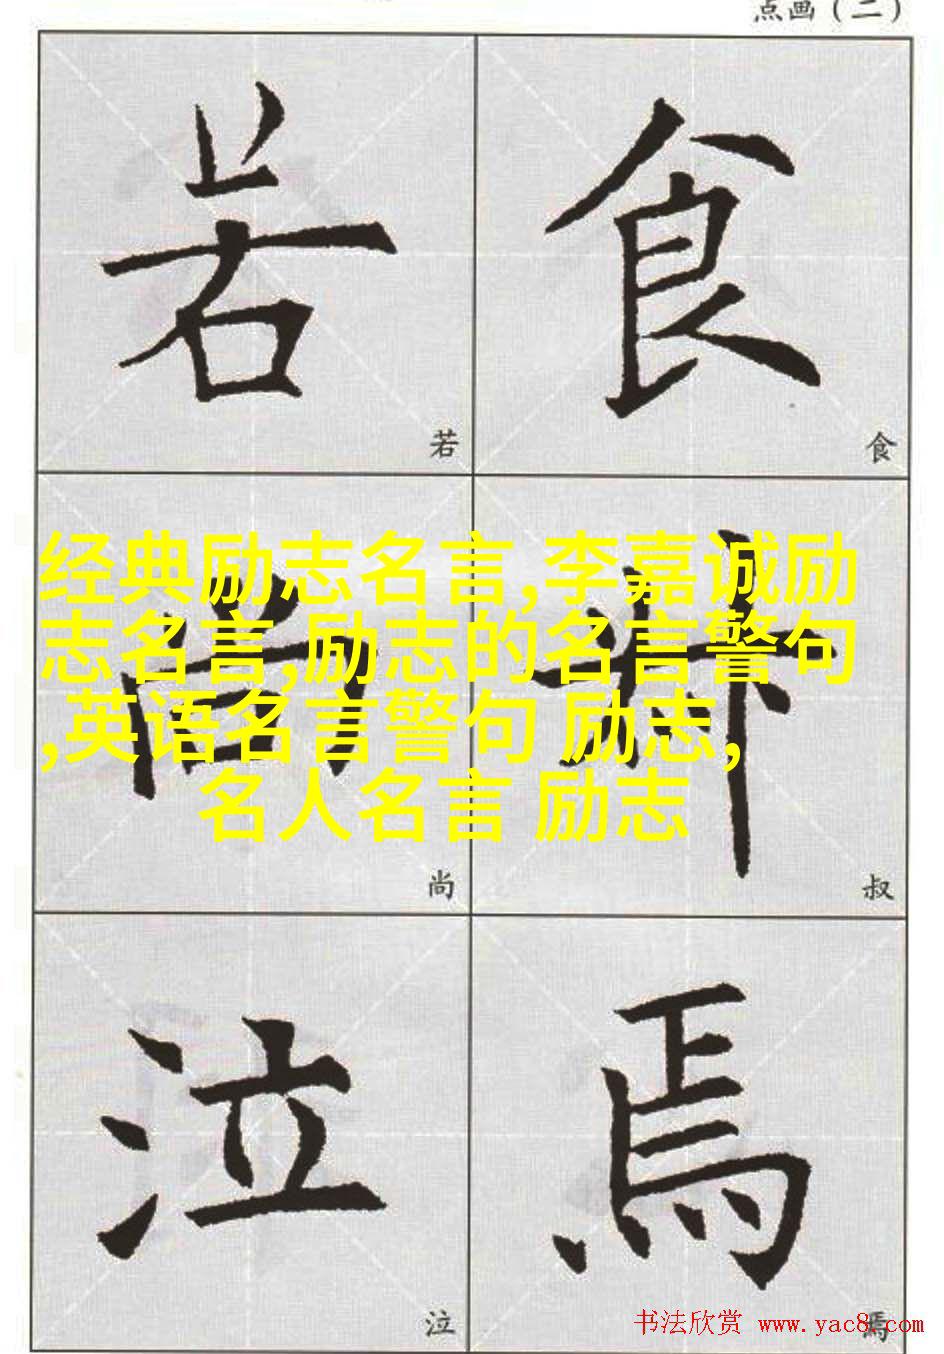 点画(二)
若 食
若 食
经典励志名言,李嘉诚励
志名言,励志的名言警句
,英语名言警句 励志,
名人名言 励志
尚 叔
尚 叔
泣 焉
泣 焉
书法欣赏 www.yac8.com